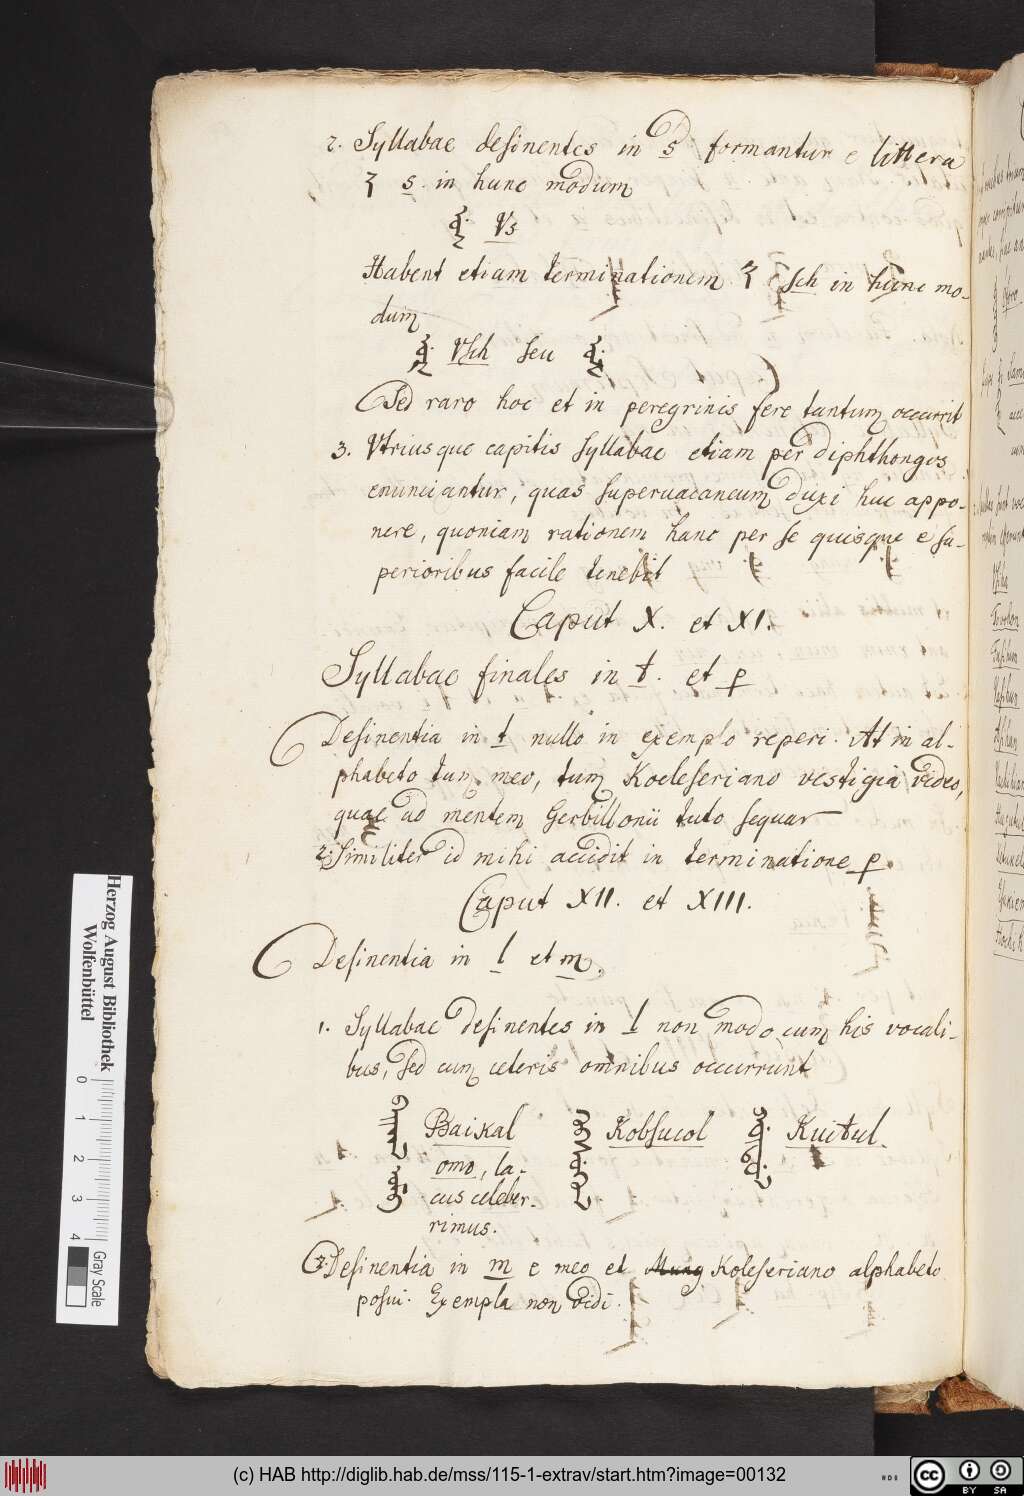 2. Syllabae desinentes in s formantur e littera
s. in hunc modum
Vs
Habent etiam terminationem sch in hunc mo-
dum
Vsch seu
Sed raro hoc et in peregrinis fere tantum occurrit
3. Vtriusque capitis syllabae etiam per diphthongos
enunciantur, quas superuacaneum duxi huc appo-
nere, quoniam rationem hanc per se quisque e su-
perioribus facile tenebit
Caput X. et XI.
Syllabae finales in t. et p
Desinentia in t nullo in exemplo reperi. At in al-
phabeto tum meo, tum Koeleseriano vestigia video,
quae ad mentem Gerbillonii tuto sequar
2. Similiter id mihi accidit in terminatione p.
Caput XII. et XIII.
Desinentia in l et m.
1. Syllabae desinentes in l non modo cum his vocali-
bus, sed cum ceteris omnibus occurrunt
Baikal Kobsucol Kuctul.
omo, la-
cus celeber-
rimus.
2. Desinentia in m e meo et Mung Koleseriano alphabeto
posui. Exempla non vidi.
Herzog August Bibliothek
Wolfenbüttel
0 1 2 3 4
Gray Scale
(c) HAB http://diglib.hab.de/mss/115-1-extrav/start.htm?image=00132
cc BY SA